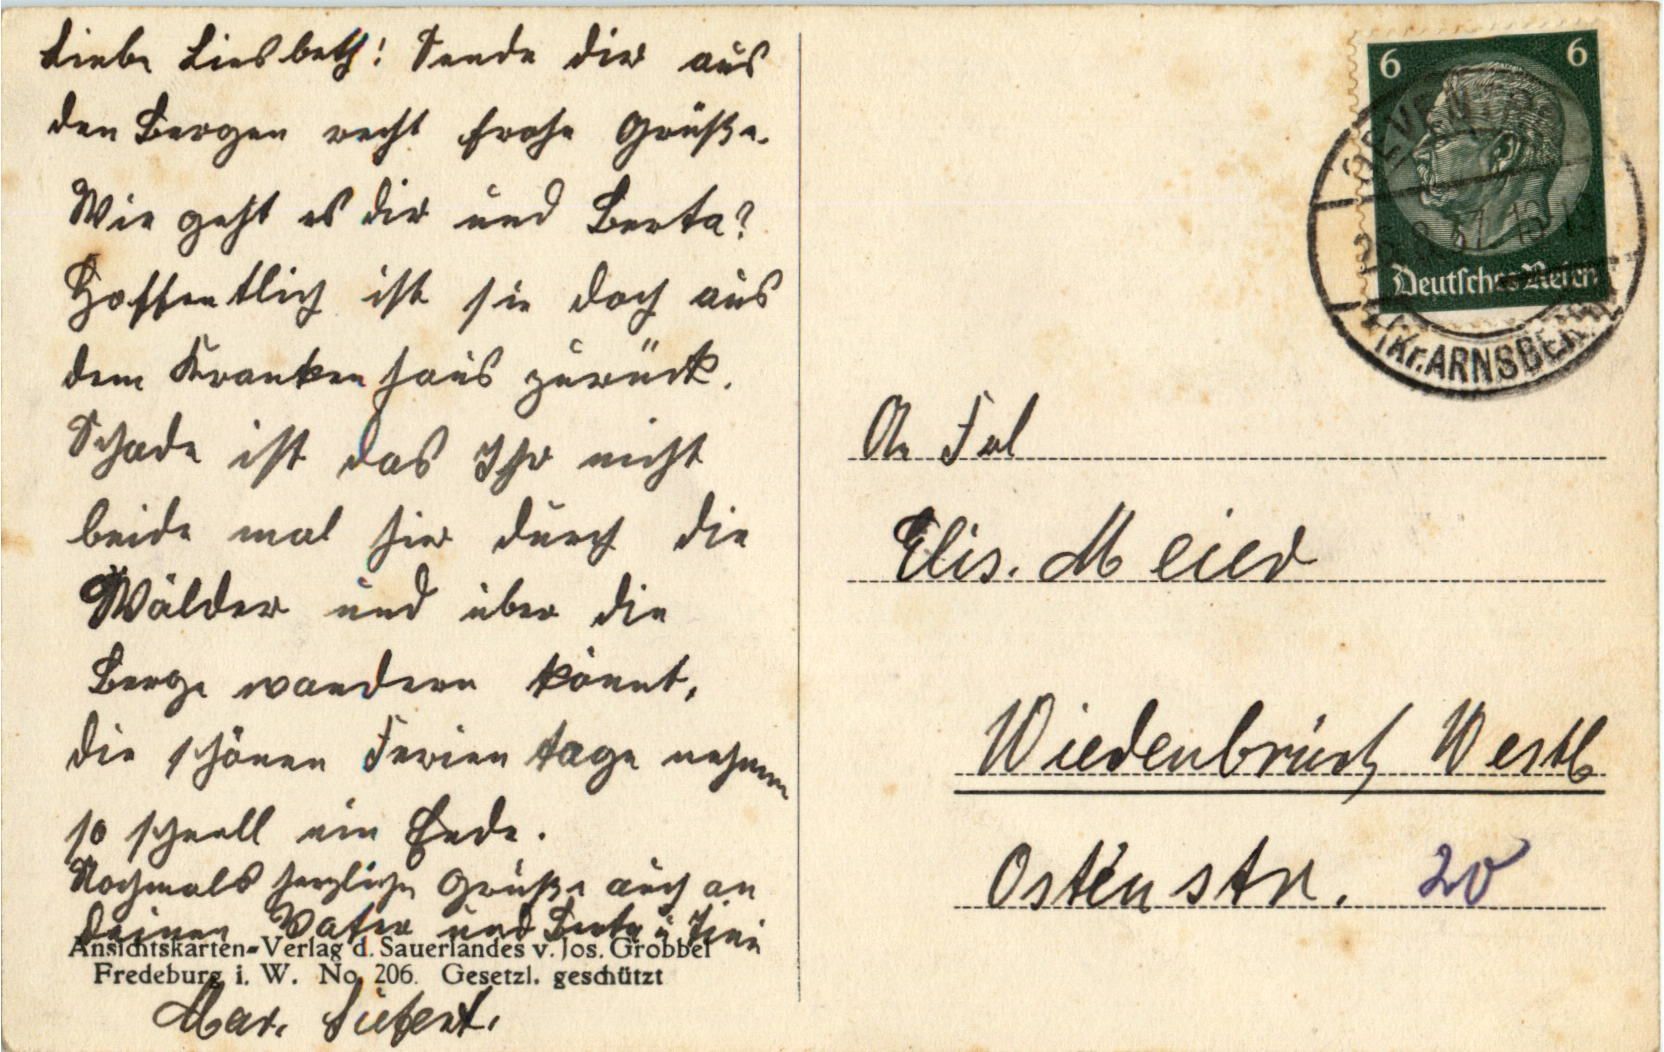 Liebe Liesbeth! Sende dir aus
den Bergen recht frohe Grüße.
Wie geht es dir und Berta?
Hoffentlich ist sie doch aus
dem Krankenhaus zurück.
Schade ist das Ihr nicht
beide mal hier durch die
Wälder und über die
Berge wandern könnt,
die schönen Ferientage nehmen
so schnell ein Ende.
Nochmals herzliche Grüße auch an
deinen Vater und Berta
Mar.
Ansichtskarten-Verlag d. Sauerlandes v. Jos. Grobbel
Fredeburg i. W. No. 206. Gesetzl. geschützt
6 6
Deutsches Reich
(Kr. ARNSBERG)
An Frl
Elis. Meier
Wiedenbrück Westf
Ostenstr. 20